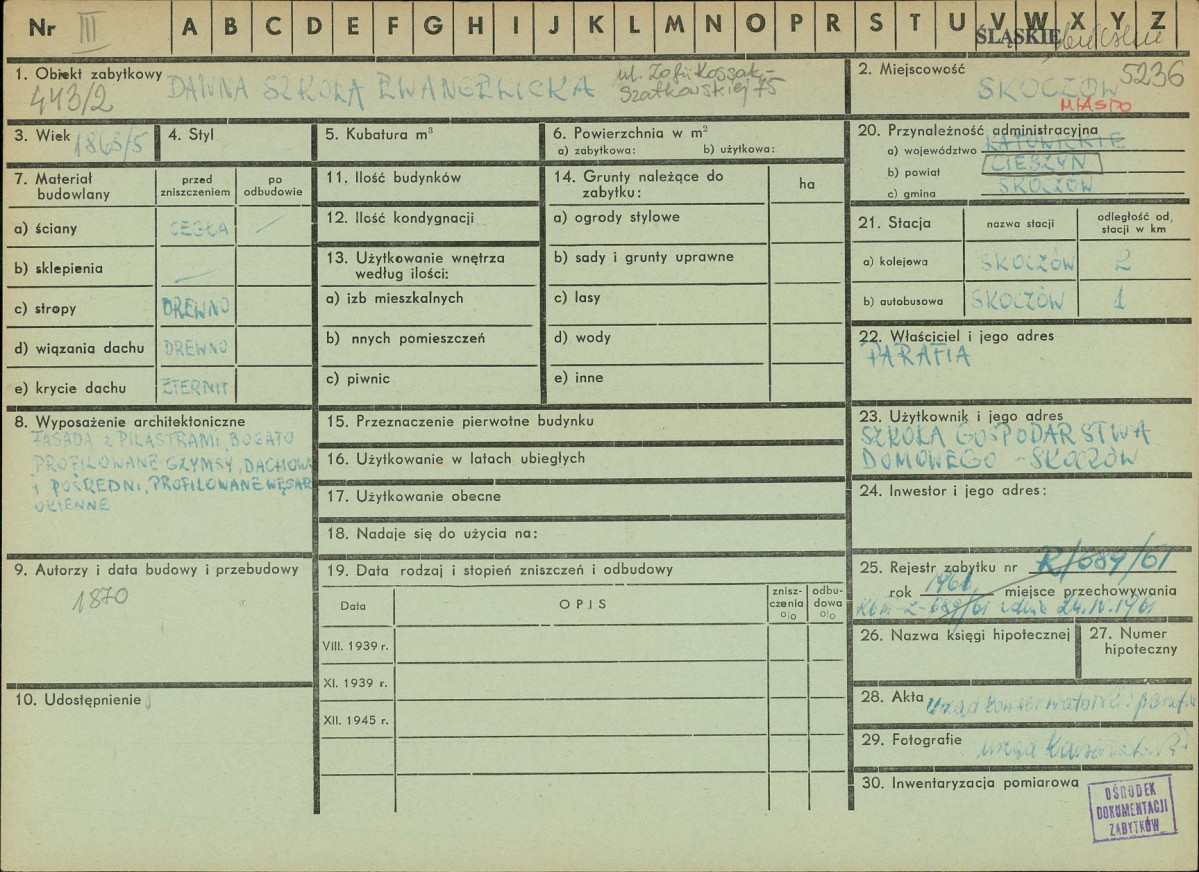 Nr III A B C D E F G H I J K L M N O P R S T U V W X Y Z
ŚLĄSKIE
1. Obiekt zabytkowy
443/2 DAWNA SZKOŁA EWANGELICKA
ul. Zofii Kossak-
Szatkowskiej 75
2. Miejscowość
SKOCZÓW 5236
MIASTO
3. Wiek 1863/5
4. Styl
5. Kubatura m³
6. Powierzchnia w m²
a) zabytkowa: b) użytkowa:
20. Przynależność administracyjna
a) województwo KATOWICKIE
b) powiat CIESZYN
c) gmina SKOCZÓW
7. Materiał budowlany
przed zniszczeniem
po odbudowie
a) ściany CEGŁA
b) sklepienia
c) stropy DREWNO
d) wiązania dachu DREWNO
e) krycie dachu ETERNIT
11. Ilość budynków
12. Ilość kondygnacji
13. Użytkowanie wnętrza
według ilości:
a) izb mieszkalnych
b) nnych pomieszczeń
c) piwnic
14. Grunty należące do
zabytku:
ha
a) ogrody stylowe
b) sady i grunty uprawne
c) lasy
d) wody
e) inne
21. Stacja
nazwa stacji
odległość od
stacji w km
a) kolejowa SKOCZÓW 2
b) autobusowa SKOCZÓW 1
22. Właściciel i jego adres
PARAFIA
8. Wyposażenie architektoniczne
FASADA z PILASTRAMI, BOGATO
PROFILOWANE GZYMSY, DACHOWY
i POŚREDNI, PROFILOWANE WĘGAR
OKIENNE
15. Przeznaczenie pierwotne budynku
16. Użytkowanie w latach ubiegłych
17. Użytkowanie obecne
18. Nadaje się do użycia na:
23. Użytkownik i jego adres
SZKOŁA GOSPODARSTWA
DOMOWEGO - SKOCZÓW
24. Inwestor i jego adres:
9. Autorzy i data budowy i przebudowy
1870
10. Udostępnienie
19. Data rodzaj i stopień zniszczeń i odbudowy
Data
OPIS
znisz-
czenia
%
odbu-
dowa
%
VIII. 1939 r.
XI. 1939 r.
XII. 1945 r.
25. Rejestr zabytku nr R/689/61
rok 1961 miejsce przechowywania
689/61 z dnia 24.IV.1961
26. Nazwa księgi hipotecznej
27. Numer
hipoteczny
28. Akta Urząd konserwatorski i parafia
29. Fotografie urząd
30. Inwentaryzacja pomiarowa
OŚRODEK
DOKUMENTACJI
ZABYTKÓW